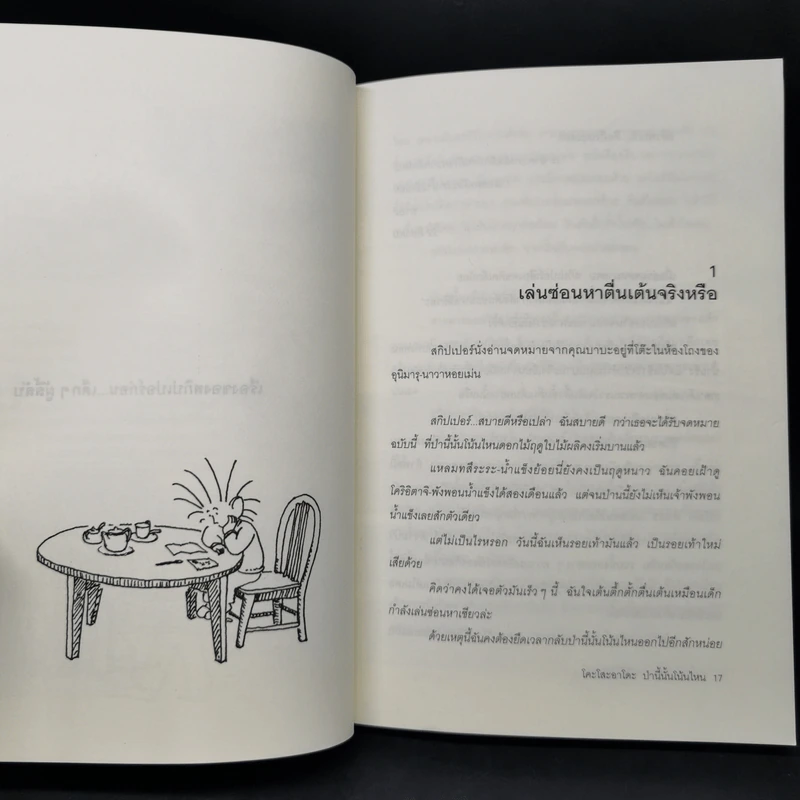 1
เล่นซ่อนหาตื่นเต้นจริงหรือ
สกิปเปอร์นั่งอ่านจดหมายจากคุณบาบะอยู่ที่โต๊ะในห้องโถงของ
อุนิมารุ-นาวาหอยเม่น
สกิปเปอร์...สบายดีหรือเปล่า ฉันสบายดี กว่าเธอจะได้รับจดหมาย
ฉบับนี้ ที่ป่านี้นั้นโน้นไหนดอกไม้ฤดูใบไม้ผลิคงเริ่มบานแล้ว
แหลมทสึระระ-น้ำแข็งย้อยนี่ยังคงเป็นฤดูหนาว ฉันคอยเฝ้าดู
โคริอิตาจิ-พังพอนน้ำแข็งได้สองเดือนแล้ว แต่จนป่านนี้ยังไม่เห็นเจ้าพังพอน
น้ำแข็งเลยสักตัวเดียว
แต่ไม่เป็นไรหรอก วันนี้ฉันเห็นรอยเท้ามันแล้ว เป็นรอยเท้าใหม่
เสียด้วย
คิดว่าคงได้เจอตัวมันเร็วๆ นี้ ฉันใจเต้นตึ้กตั้กตื่นเต้นเหมือนเด็ก
กำลังเล่นซ่อนหาเชียวล่ะ
ด้วยเหตุนี้ฉันคงต้องยืดเวลากลับป่านี้นั้นโน้นไหนออกไปอีกสักหน่อย
โคะโสะอาโดะ ป่านี้นั้นโน้นไหน 17